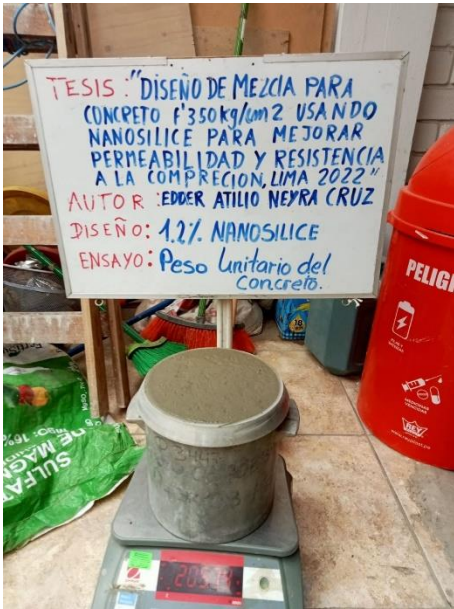 TESIS: "DISEÑO DE MEZCLA PARA
CONCRETO F'350kg/cm2 USANDO
NANOSILICE PARA MEJORAR
PERMEABILIDAD Y RESISTENCIA
A LA COMPRECION, LIMA 2022"
AUTOR: EDDER ATILIO NEYRA CRUZ
DISEÑO: 1.2% NANOSILICE
ENSAYO: Peso Unitario del
Concreto.
PELIG
REY
SULFAT
DE MAGN